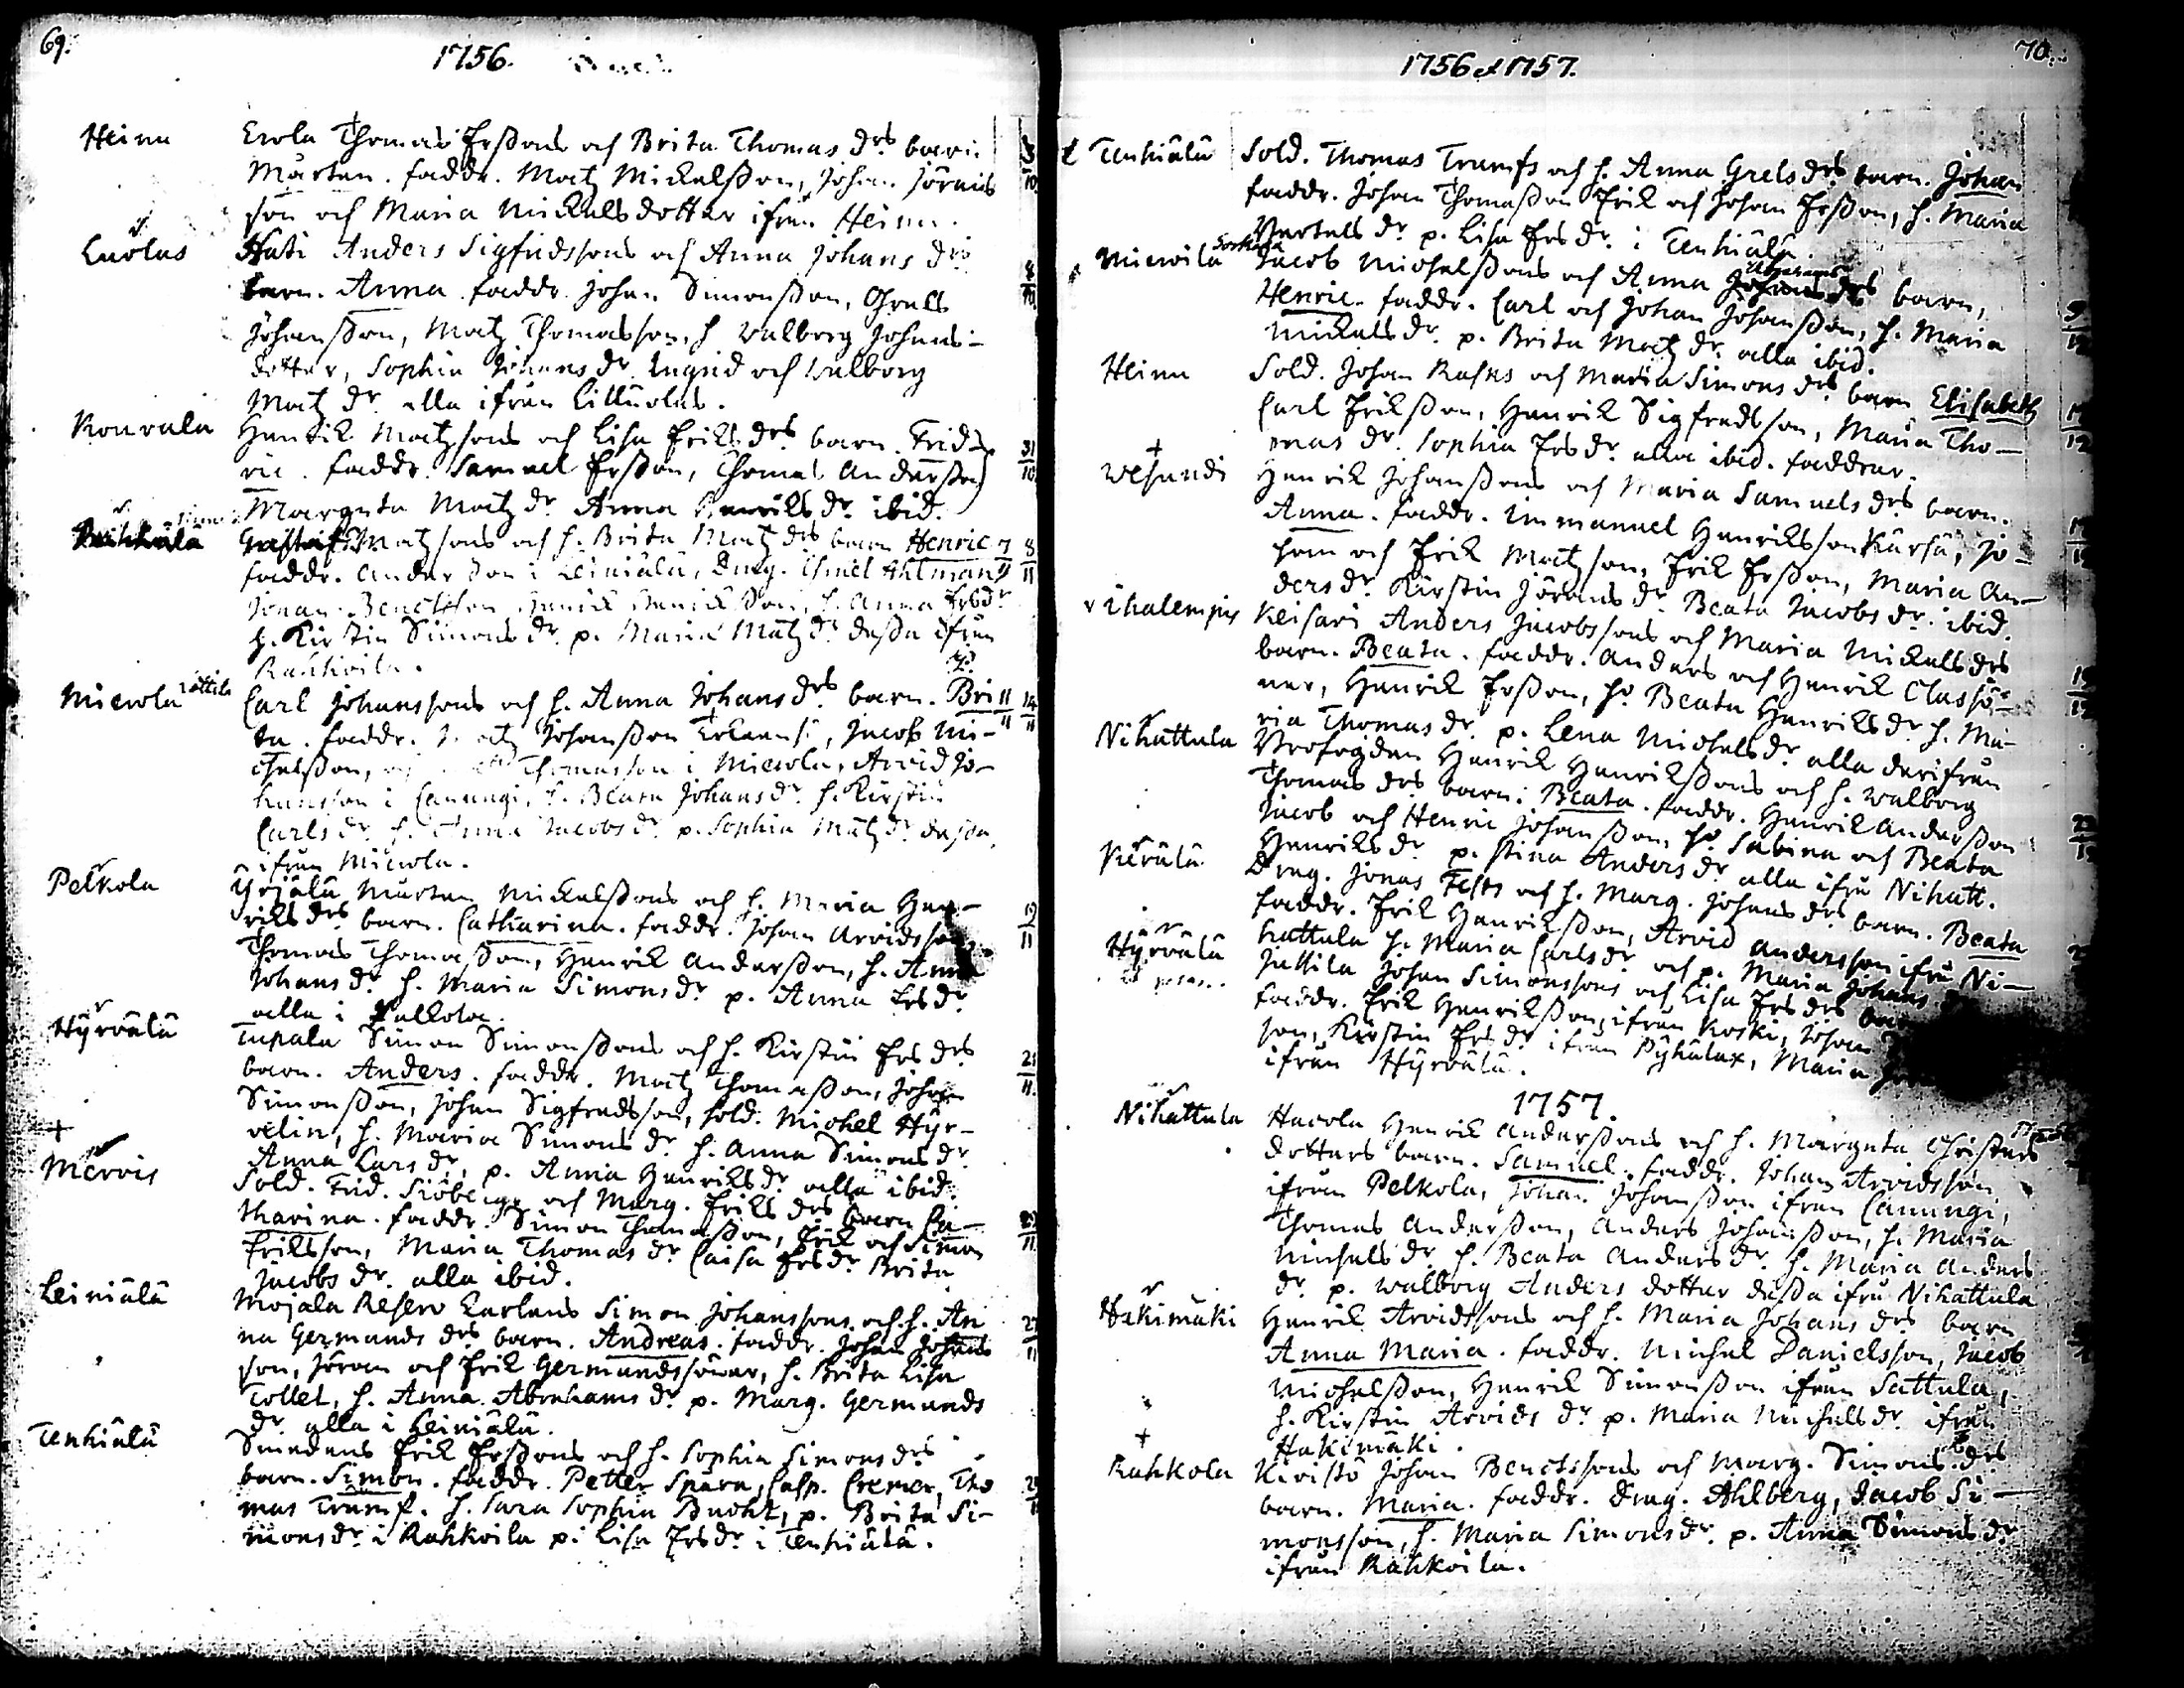 69.
1756.
Heinu Erola Thomas Ersßons och Brita Thomas drs barn.
Mårten. faddr. Matz Mickelsßon, Johan Jörans
son och Maria Mickels dotter ifrån Heinu.
Luolas Hati Anders Sigfridssons och Anna Johans drs
barn. Anna faddr. Johan Simonsßon, Grels
Johansßon, Matz Thomasson, h. Walborg Johans-
dotter, Sophia Johans dr. Ingrid och Walborg
Matz dr. alla ifrån Lilluolas.
Rouvala Henrik Matzsons och Lisa Eriks drs barn. Frid-
ric. faddr. Samuel Ersßon, Thomas Andersßon
Margreta Matz dr. Anna Henriks dr. ibid.
Matzsons och h. Brita Matz drs barn Henric 7/11 8/11
faddr. Andersßon i Leiniälä, Drag. Ahlman
Johan Benctsson Henrik Henriksßon, h. Anna Ersdr
h. Kirstin Simons dr. p. Maria Matz dr. deßa ifrån
Rahkoila.
Mierola Carl Johanssons och h. Anna Johans drs barn. Bri 11/11 14/11
ta. faddr. Matz Johansßon, Jacob Mi-
chelsßon, Thomasson i Mierola, Arvid Jo-
hansson i Canungi, h. Beata Johans dr. h. Kirstin
Carls dr. h. Anna Jacobs dr. p. Sophia Matz dr. deßa
ifrån Mierola.
Pelkola Yrjälä Mårten Mickelsßons och h. Maria Hen-
riks drs barn. Catharina. faddr. Johan Arvidsson
Thomas Thomaßon, Henrik Andersßon, h. Anna
Johans dr. h. Maria Simons dr. p. Anna Ers dr.
alla i Pälkola.
Hyrvälä Tupala Simon Simonsßons och h. Kirstin Ers drs
barn. Anders. faddr. Matz Thomaßon, Johan
Simonsßon, Johan Sigfredsson, sold. Michel Hyr-
velin, h. Maria Simons dr. h. Anna Simons dr.
Anna Lars dr. p. Anna Henriks dr. alla ibid.
Mervis Sold. Frid. Siöbergs och Marg. Eriks drs barn Ca-
tharina. faddr. Simon Thomaßon, Erik och Simon
Eriksson, Maria Thomas dr. Caisa Ers dr. Brita
Jacobs dr. alla ibid.
Leiniälä Mojala Reserv Karlens Simon Johanssons och h. An
na Germunds drs barn. Andreas. faddr. Johan Johans
son, Jöran och Erik Germundssöner, h. Brita Lisa
Tollet, h. Anna Abrahams dr. p. Marg. Germunds
dr. alla i Leiniälä.
Tenhiälä Smedens Erik Ersßons och h. Sophia Simons drs
barn. Simon. faddr. Petter Spåra, Casp. Cremer, Tho
mas Trumf. h. Sara Sophia Bucht, p. Brita Si-
mons dr. i Rahkoila p. Lisa Ers dr. i Tenhiälä.
70.
1756 et 1757.
Tenhiälä Sold. Thomas Trumfs och h. Anna Grels drs barn. Johan
faddr. Johan Thomaßon Erik och Johan Ersßon, h. Maria
Bertels dr. p. Lisa Ers dr. i Tenhiälä.
Mierola Jacob Michelsßons och Anna Abrahams drs barn,
Henric. faddr. Carl och Johan Johansßon, h. Maria
Mickels dr. p. Brita Matz dr. alla ibid.
Heinu Sold. Johan Rasks och Maria Simons drs barn Elisabeth
Carl Eriksßon, Henrik Sigfredsson, Maria Tho-
mas dr. Sophia Ers dr. alla ibid. faddrar.
Wesundi Henrik Johansßons och Maria Samuels drs barn.
Anna. faddr. Immanuel Henriksson Kärsä, Jo-
han och Erik Matzson, Erik Ersßon, Maria An-
ders dr. Kirstin Jörans dr. Beata Jacobs dr. ibid.
Ihalempis Keisari Anders Jacobssons och Maria Mickels drs
barn. Beata. faddr. Anders och Henrik Classö-
ner, Henrik Ersßon, h. Beata Henriks dr. h. Ma-
ria Thomas dr. p. Lena Michels dr. alla derifrån
Nihattula Profogden Henrik Henriksßons och h. Walborg
Thomas drs barn. Beata. faddr. Henrik Andersßon
Jacob och Henric Johansßon, h. Sabina och Beata
Henriks dr. p. Stina Anders dr. alla ifrån Nihatt.
Kerälä Drag. Jonas Fests och h. Marg. Johans drs barn. Beata
faddr. Erik Henriksßon, Arvid Andersson ifrån Ni-
hattula h. Maria Carls dr. och p. Maria Johans
Hyrvälä Juttila Johan Simonssons och Lisa Ers drs
faddr. Erik Henriksßon, ifrån Koski, Johan
son, Kirstin Ers dr. ifrån Pyhälax, Maria
ifrån Hyrvälä.
1757.
Nihattula Hacola Henrik Andersßons och h. Margreta Christers
dotters barn. Samuel. faddr. Johan Arvidsson
ifrån Pelkola, Johan Johansßon ifrån Canungi,
Thomas Andersßon, Anders Johansßon, h. Maria
Michels dr. h. Beata Anders dr. h. Maria Anders
dr. p. Walborg Anders dotter deßa ifrån Nihattula
Hakimäki Henrik Arvidssons och h. Maria Johans drs barn
Anna Maria. faddr. Michel Danielsson, Jacob
Michelsßon, Henrik Simonsßon ifrån Sattula,
h. Kirstin Arvids dr. p. Maria Michels dr. ifrån
Hakimäki.
Rahkola Kivistö Johan Benctssons och Marg. Simons drs
barn. Maria. faddr. Drag. Ahlberg, Jacob Si-
monsson, h. Maria Simons dr. p. Anna Simons dr
ifrån Rahkoila.